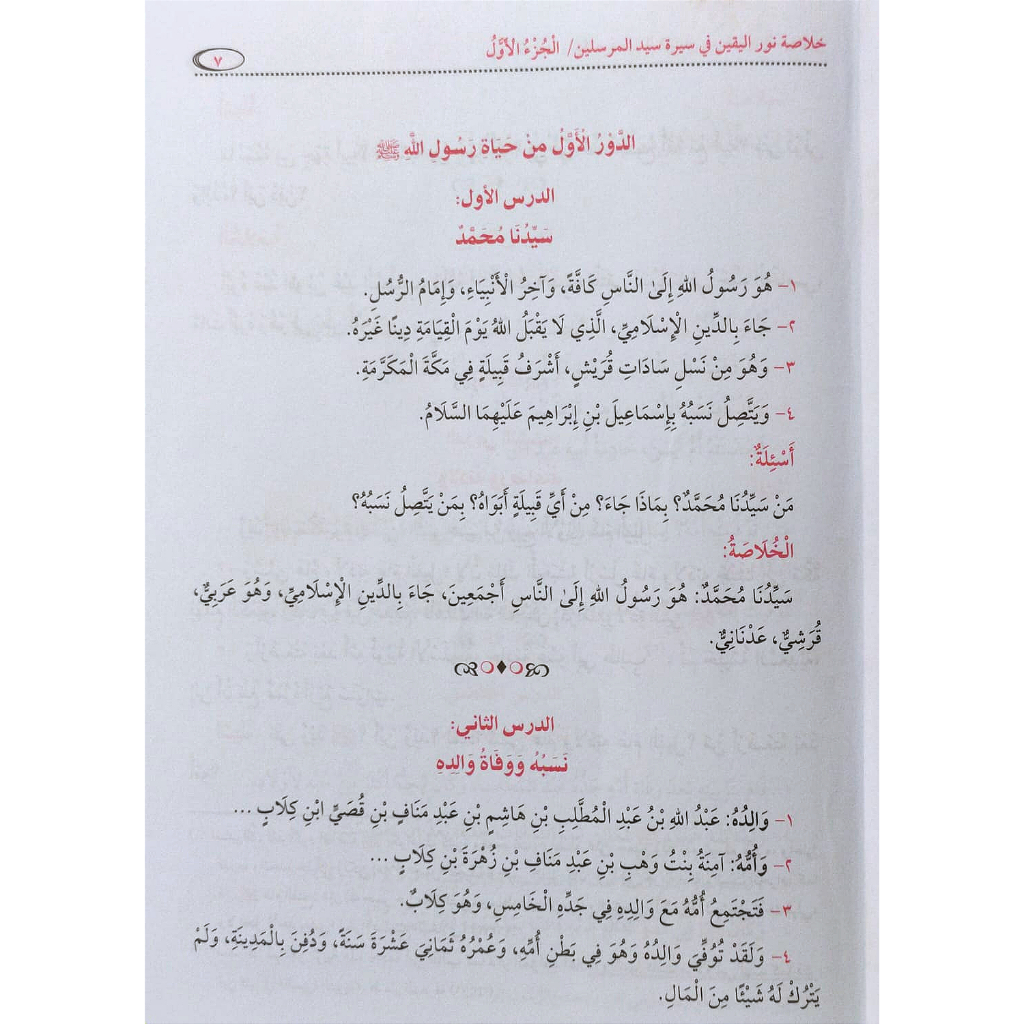 خلاصة نور اليقين في سيرة سيد المرسلين/ الْجُزْءُ الْأَوَّلُ
٧
الدَّوْرُ الْأَوَّلُ مِنْ حَيَاةِ رَسُولِ اللهِ ﷺ
الدرس الأول:
سَيِّدُنَا مُحَمَّدٌ
١- هُوَ رَسُولُ اللهِ إِلَىٰ النَّاسِ كَافَّةً، وَآخِرُ الْأَنْبِيَاءِ، وَإِمَامُ الرُّسُلِ.
٢- جَاءَ بِالدِّينِ الْإِسْلَامِيِّ، الَّذِي لَا يَقْبَلُ اللهُ يَوْمَ الْقِيَامَةِ دِينًا غَيْرَهُ.
٣- وَهُوَ مِنْ نَسْلِ سَادَاتِ قُرَيْشٍ، أَشْرَفُ قَبِيلَةٍ فِي مَكَّةَ الْمَكَرَّمَةِ.
٤- وَيَتَّصِلُ نَسَبُهُ بِإِسْمَاعِيلَ بْنِ إِبْرَاهِيمَ عَلَيْهِمَا السَّلَامُ.
أَسْئِلَةٌ:
مَنْ سَيِّدُنَا مُحَمَّدٌ؟ بِمَاذَا جَاءَ؟ مِنْ أَيِّ قَبِيلَةٍ أَبَوَاهُ؟ بِمَنْ يَتَّصِلُ نَسَبُهُ؟
الْخُلَاصَةُ:
سَيِّدُنَا مُحَمَّدٌ: هُوَ رَسُولُ اللهِ إِلَىٰ النَّاسِ أَجْمَعِينَ، جَاءَ بِالدِّينِ الْإِسْلَامِيِّ، وَهُوَ عَرَبِيٌّ،
قُرَشِيٌّ، عَدْنَانِيٌّ.
الدرس الثاني:
نَسَبُهُ وَوَفَاةُ وَالِدِهِ
١- وَالِدُهُ: عَبْدُ اللهِ بْنُ عَبْدِ الْمُطَّلِبِ بْنِ هَاشِمِ بْنِ عَبْدِ مَنَافِ بْنِ قُصَيِّ ابْنِ كِلَابٍ ...
٢- وَأُمُّهُ: آمِنَةُ بِنْتُ وَهْبِ بْنِ عَبْدِ مَنَافِ بْنِ زُهْرَةَ بْنِ كِلَابٍ ...
٣- فَتَجْتَمِعُ أُمُّهُ مَعَ وَالِدِهِ فِي جَدِّهِ الْخَامِسِ، وَهُوَ كِلَابٌ.
٤- وَلَقَدْ تُوُفِّيَ وَالِدُهُ وَهُوَ فِي بَطْنِ أُمِّهِ، وَعُمْرُهُ ثَمَانِيَ عَشْرَةَ سَنَةً، وَدُفِنَ بِالْمَدِينَةِ، وَلَمْ
يَتْرُكْ لَهُ شَيْئًا مِنَ الْمَالِ.